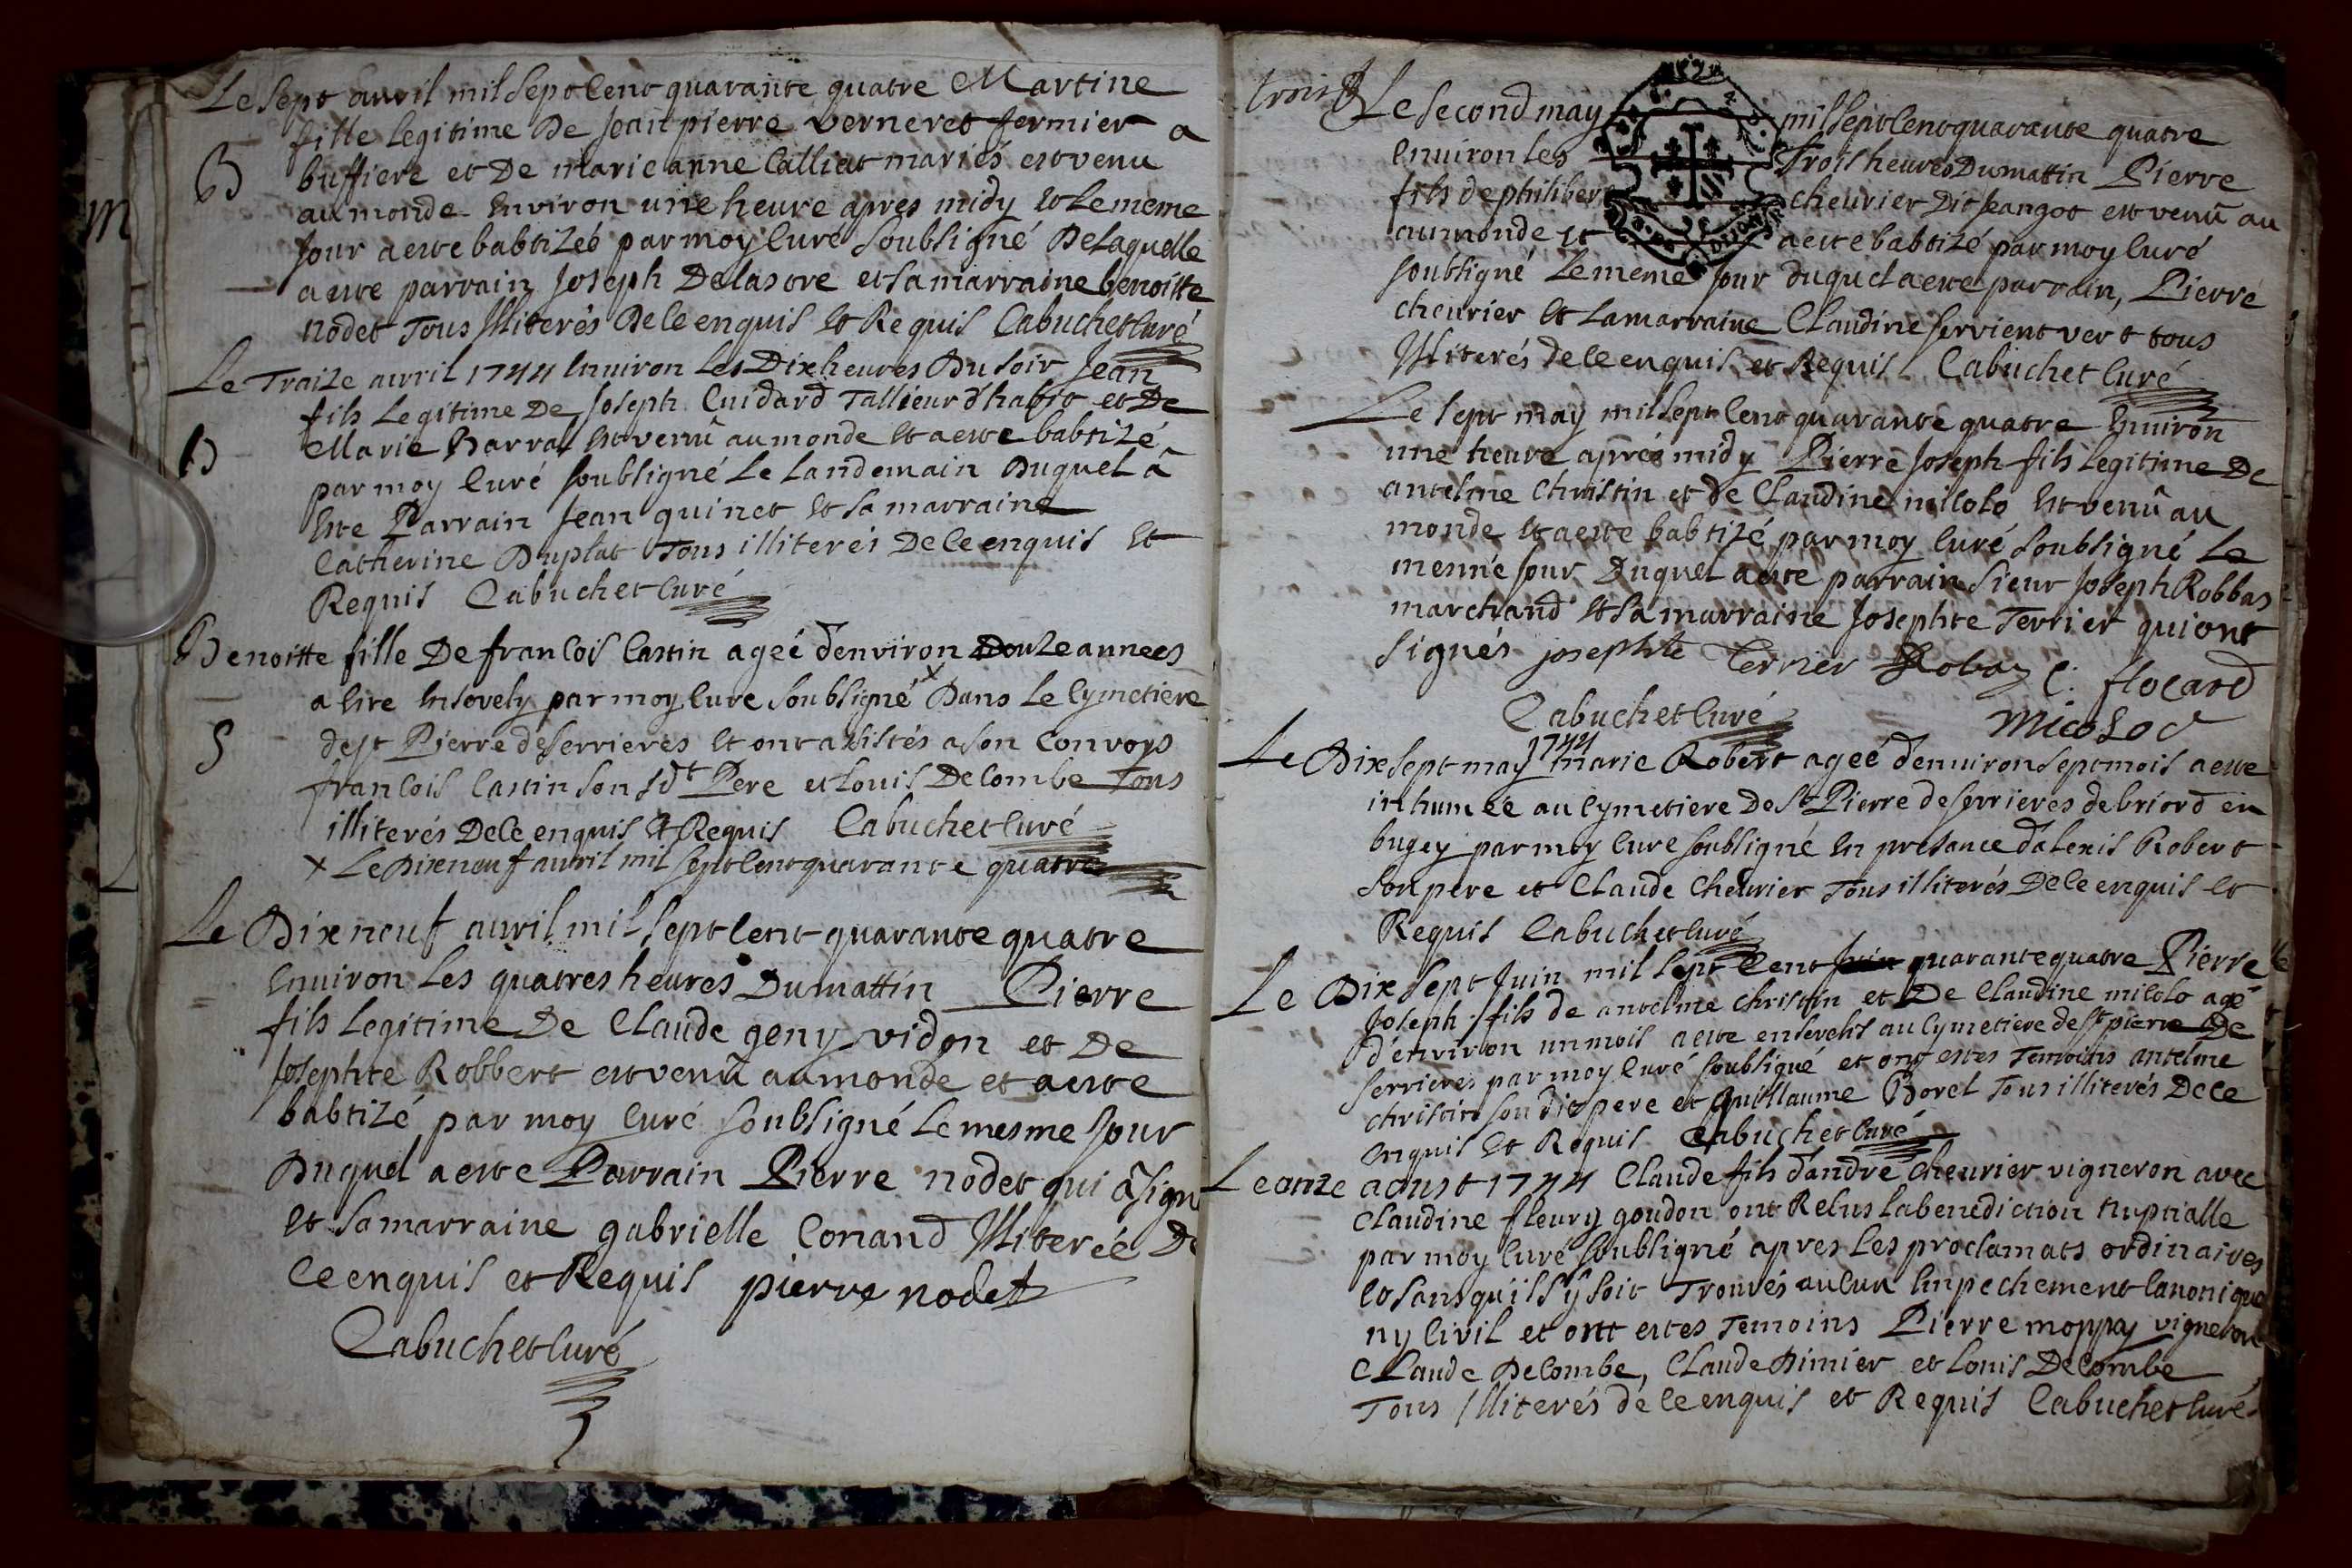 Le sept avril mil sept cent quarante quatre Martine
fille legitime De Jean pierre verneret fermier a
B
buffiere et De marie anne Calliat mariés est venu
m
au monde Environ une heure apres midy et le meme
Jour a este babtizéé par moy Curé soubsigné De laquelle
a este parrain Joseph Delastre et sa marraine benoitte
nodet Tous Illiterés De ce enquis et Requis Cabuchet Curé
Le Traize avril 1744 Environ Les Dix heures Du soir Jean
fils Legitime De Joseph Cuidard Tallieur d'habit et De
B
Marie Barral Est venû au monde et a este babtizé
par moy Curé soubsigné Le Landemain Duquel â
Este Parrain Jean quinet et sa marraine
Catherine Duplat Tous illiterés De ce enquis et
Requis Cabuchet Curé
Benoitte fille De francois Castin ageé d'environ Douze annees
a Eté Ensevely par moy Curé soubsigné x Dans Le Cymetiere
S
de st Pierre de serrieres et ont assistés a son Convoys
francois Castin son sdt Pere et Louis De Combe Tous
illiterés De ce enquis et Requis Cabuchet Curé
x Le Dixneuf avril mil sept cent quarante quatre
Le Dixneuf avril mil sept cent quarante quatre
Environ Les quatres heures Du mattin Pierre
fils Legitime De Claude geny vidon et De
Josephte Robbert est venû au monde et a este
babtizé par moy Curé soubsigné Le mesme Jour
Duquel a este Parrain Pierre nodet qui â sign
et sa marraine gabrielle Conand Illitereé De
ce enquis et Requis pierre nodet
Cabuchet Curé
trois
Le second may mil sept cent quarante quatre
Environ Les Trois heures Du mattin Pierre
fils de philiber cheurier Dit Jeangot est venû au
au monde et a este babtizé par moy Curé
soubsigné Le meme Jour duquel a este parrain, Pierre
cheurier et La marraine Claudine servient vert tous
Illiterés de ce enquis et Requis Cabuchet Curé
Le sept may mil sept cent quarante quatre Environ
une heure aprés midy Pierre Joseph fils Legitime De
antelme Christin et de Claudine micolo Est venû au
monde et a este babtizé par moy Curé soubsigné Le
mesme Jour Duquel a este parrain sieur Joseph Robbas
marchand et sa marraine Josephte Terrier qui ont
signés josephte Terrier Robaz C. flocard
Cabuchet Curé micolod
1744
Le Dix sept may marie Robert ageé d'environ sept mois a este
inhumeé au Cymetiere De St Pierre de serrieres de briord en
bugey par moy Cure soubsigné En presance d'alexis Robert
son pere et Claude Cheurier Tous illiterés De ce enquis et
Requis Cabuchet Curé
Le Dix sept Juin mil sept Cent Juin quarante quatre Pierre
Joseph fils de antelme christin et De Claudine micolo agé
d'environ un mois a este ensevelis au Cymetiere de st pierre De
serrieres par moy Curé soubsigné et ont estes Temoins antelme
christin son dit pere et guillaume Borel Tous illiterés De ce
enquis et Requis Cabuchet Curé
Le onze aoust 1744 Claude fils d'andré Cheurier vigneron avec
Claudine fleury goudon ont Relus la benediction nuptialle
par moy Curé soubsigné apres Les proclamats ordinaires
et sans quils y soit Trouvés aucun Empechement Canonique
ny Civil et ont estes Temoins Pierre moppay vigneron
Claude De Combe, Claude Dimier et Louis De Combe
Tous Illiterés de ce enquis et Requis Cabuchet Curé